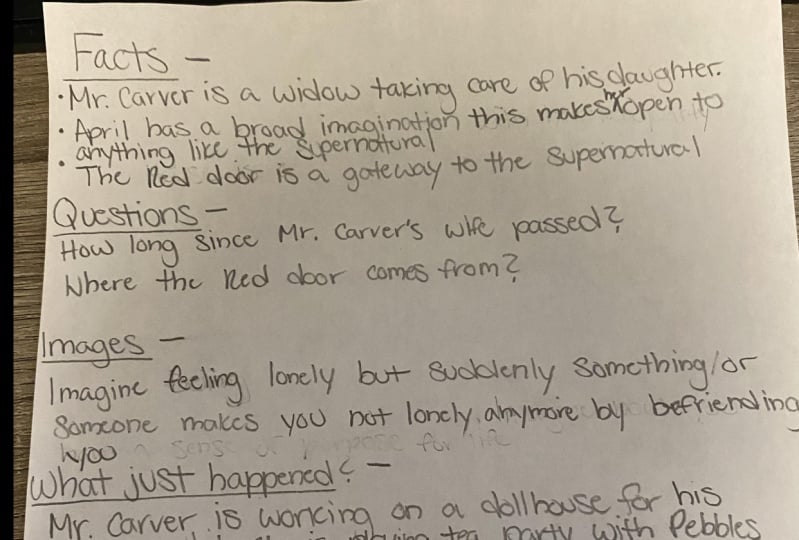 Facts -
• Mr. Carver is a widow taking care of his daughter.
• April has a broad imagination this makes her open to
• anything like the supernatural
The Red door is a gateway to the supernatural
Questions -
How long since Mr. Carver's wife passed?
Where the Red door comes from?
Images -
Imagine feeling lonely but suddenly something/or
Someone makes you not lonely anymore by befriending
you a sense of purpose for life
What just happened? -
Mr. Carver is working on a dollhouse for his
tea party with Pebbles